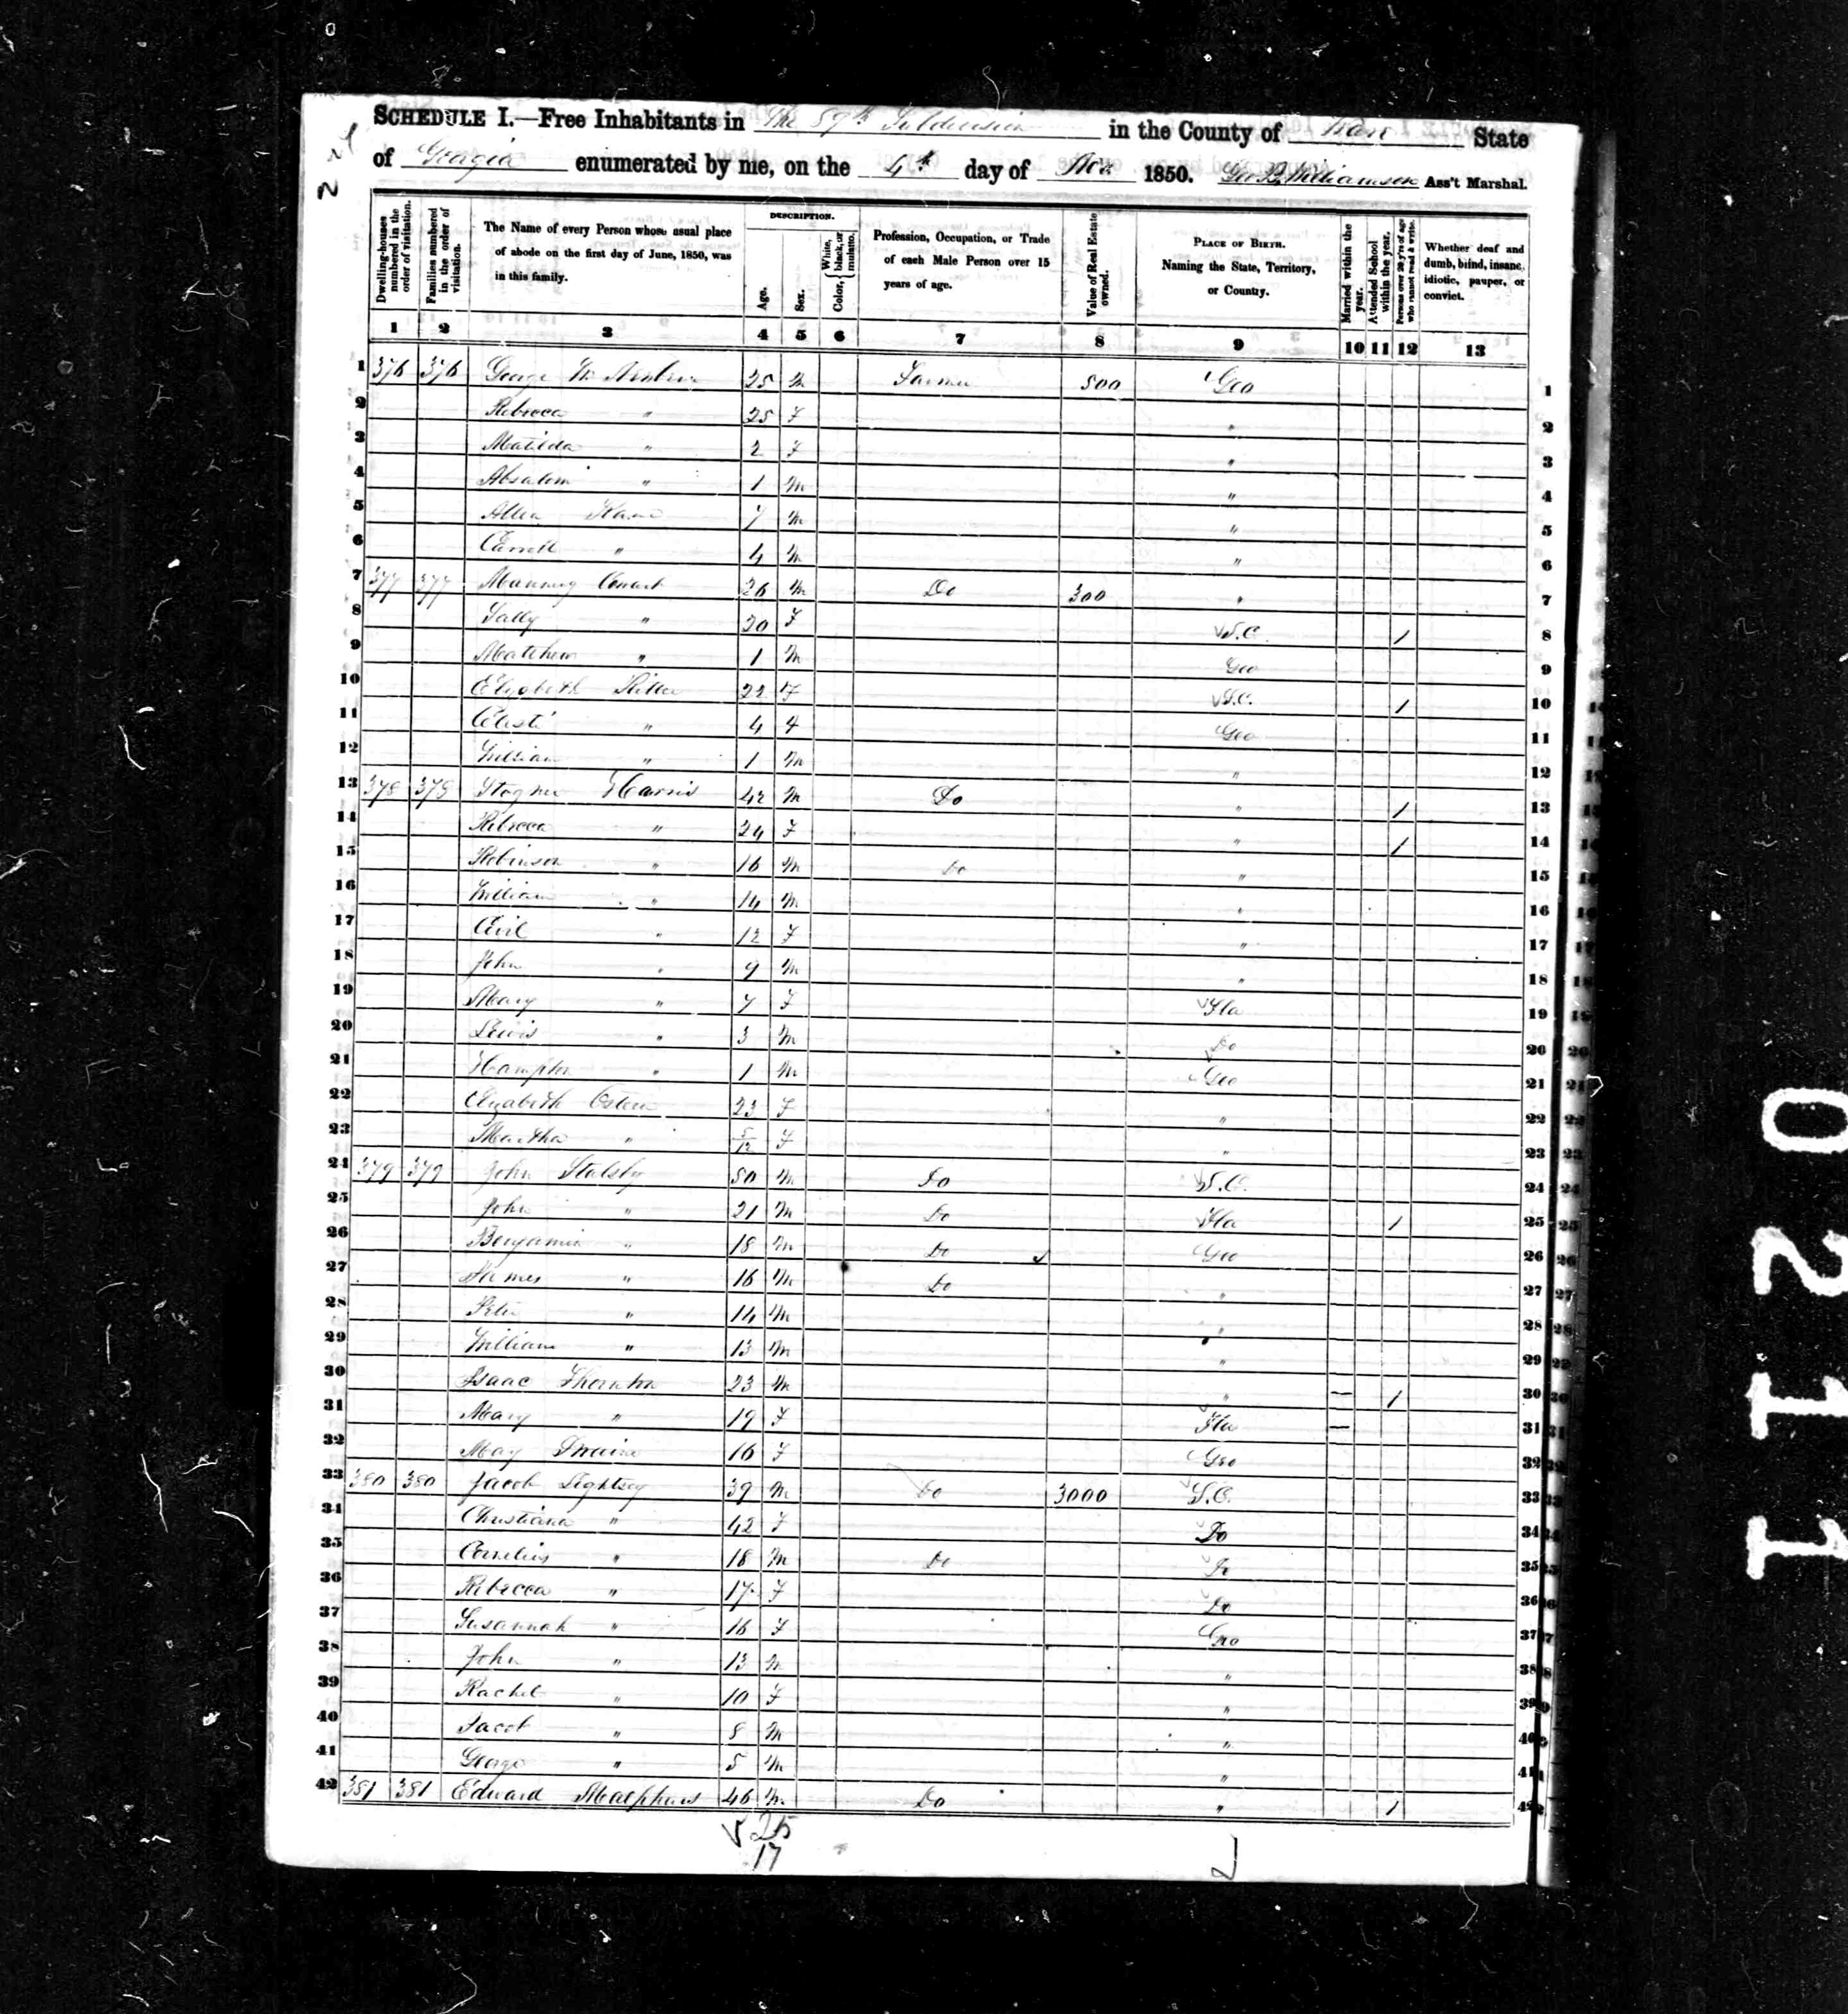 SCHEDULE I.—Free Inhabitants in The 59th Subdivision in the County of Ware State
of Georgia enumerated by me, on the 4th day of Nov 1850. Geo B Williamson Ass't Marshal.
Dwelling-houses numbered in the order of visitation.
Families numbered in the order of visitation.
The Name of every Person whose usual place of abode on the first day of June, 1850, was in this family.
DESCRIPTION.
Age.
Sex.
Color, { White, black, or mulatto.
Profession, Occupation, or Trade of each Male Person over 15 years of age.
Value of Real Estate owned.
PLACE OF BIRTH. Naming the State, Territory, or Country.
Married within the year.
Attended School within the year.
Persons over 20 y'rs of age who cannot read & write.
Whether deaf and dumb, blind, insane, idiotic, pauper, or convict.
1 2 3 4 5 6 7 8 9 10 11 12 13
1 376 376 George W 25 M Farmer 500 Geo 1
2 Rebecca " 25 F " 2
3 Matilda " 2 F " 3
4 Absalom " 1 M " 4
5 Allen 7 M " 5
6 " 4 M " 6
7 377 377 Manning 26 M Do 300 " 7
8 Sally " 20 F S.C. 1 8
9 Mathew " 1 M Geo 9
10 Elizabeth 22 F S.C. 1 10
11 " 4 4 Geo 11
12 William " 1 M " 12
13 378 378 Harris 42 M Do " 1 13
14 Rebecca " 24 F " 1 14
15 Robinson " 16 M Do " 15
16 William " 14 M " 16
17 " 12 F " 17
18 John " 9 M " 18
19 Mary " 7 F Fla 19
20 Lewis " 3 M Do 20
21 Hampton " 1 M Geo 21
22 Elizabeth 23 F " 22
23 Martha " 5/12 F " 23
24 379 379 John Stalsby 50 M Do S.C. 24
25 John " 21 M Do Fla 1 25
26 Benjamin " 18 M Do Geo 26
27 James " 16 M Do " 27
28 Peter " 14 M " 28
29 William " 13 M " 29
30 Isaac Thornton 23 M " — 1 30
31 Mary " 19 F Fla — 31
32 May 16 F Geo 32
33 380 380 Jacob Lightsey 39 M Do 3000 S.C. 33
34 Christiana " 42 F Do 34
35 Cornelius " 18 M Do Do 35
36 Rebecca " 17 F Do 36
37 Susannah " 16 F Geo 37
38 John " 13 M " 38
39 Rachel " 10 F " 39
40 Jacob " 8 M " 40
41 George " 5 M " 41
42 381 381 Edward 46 M Do " 1 42
25
17
0211